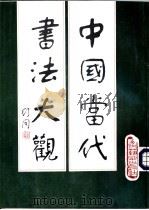 中國當代
書法大觀